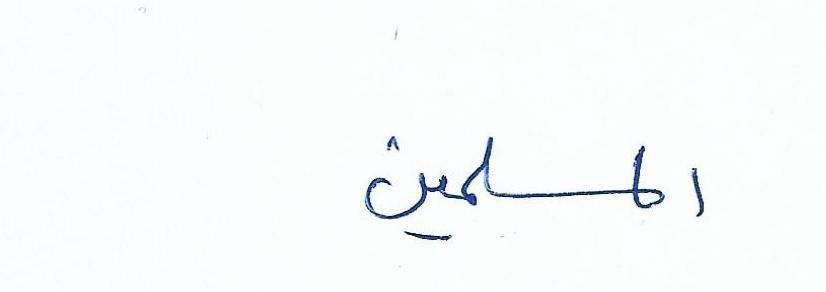 المسلمين